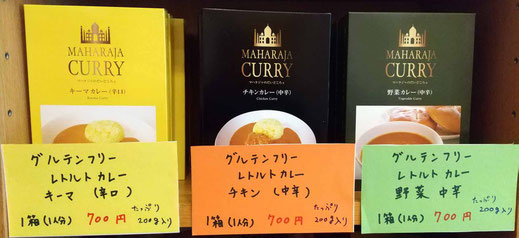 MAHARAJA
CURRY
キーマカレー(辛口)
Keema Curry
グルテンフリー
レトルトカレー
キーマ (辛口)
たっぷり
1箱(1人分) 700円 200g入り
MAHARAJA
CURRY
チキンカレー(中辛)
Chicken Curry
グルテンフリー
レトルトカレー
チキン (中辛)
たっぷり
1箱(1人分) 700円 200g入り
MAHARAJA
CURRY
野菜カレー(中辛)
Vegetable Curry
グルテンフリー
レトルトカレー
野菜 中辛
たっぷり
1箱(1人分) 700円 200g入り